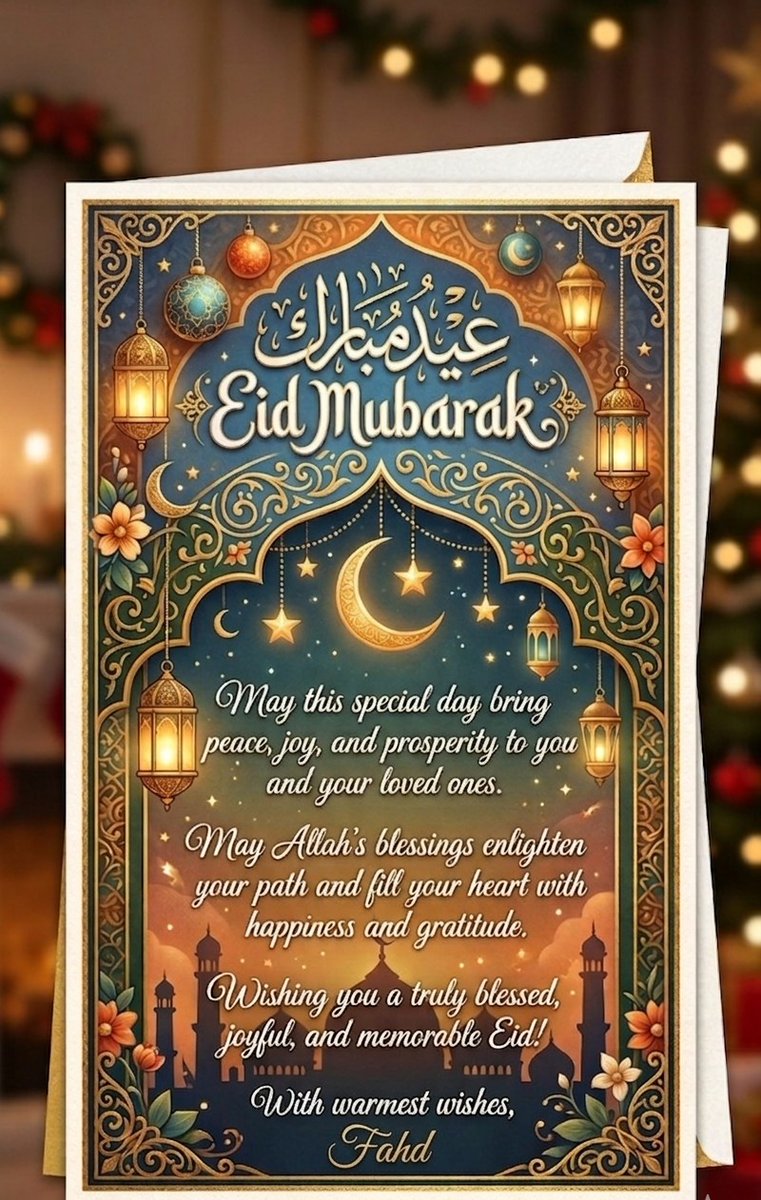 عيد مبارك
Eid Mubarak
May this special day bring
peace, joy, and prosperity to you
and your loved ones.
May Allah's blessings enlighten
your path and fill your heart with
happiness and gratitude.
Wishing you a truly blessed,
joyful, and memorable Eid!
With warmest wishes,
Fahd